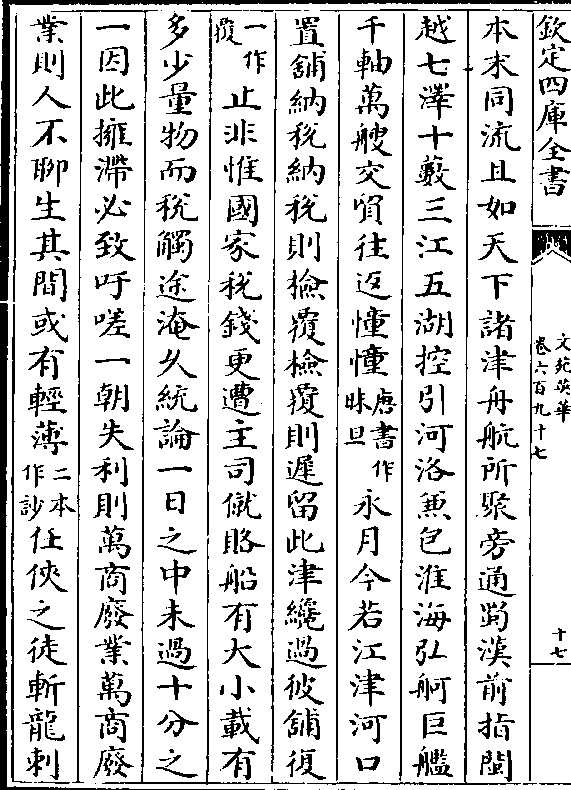 欽定四庫全書
文苑英華
卷六百九十七
十七
本末同流且如天下諸津舟航所聚旁通蜀漢前指閩
越七澤十藪三江五湖控引河洛兼包淮海弘舸巨艦
千軸萬艘交貿往返憧憧唐書作昧旦永月今若江津河口
置舖納稅納稅則檢覆檢覆則遲留此津纔過彼舖復
一作覆止非惟國家稅錢更遭主司僦賂船有大小載有
多少量物而稅觸途淹久統論一日之中未過十分之
一因此擁滯必致吁嗟一朝失利則萬商廢業萬商廢
業則人不聊生其間或有輕薄二本作訬任俠之徒斬龍刺